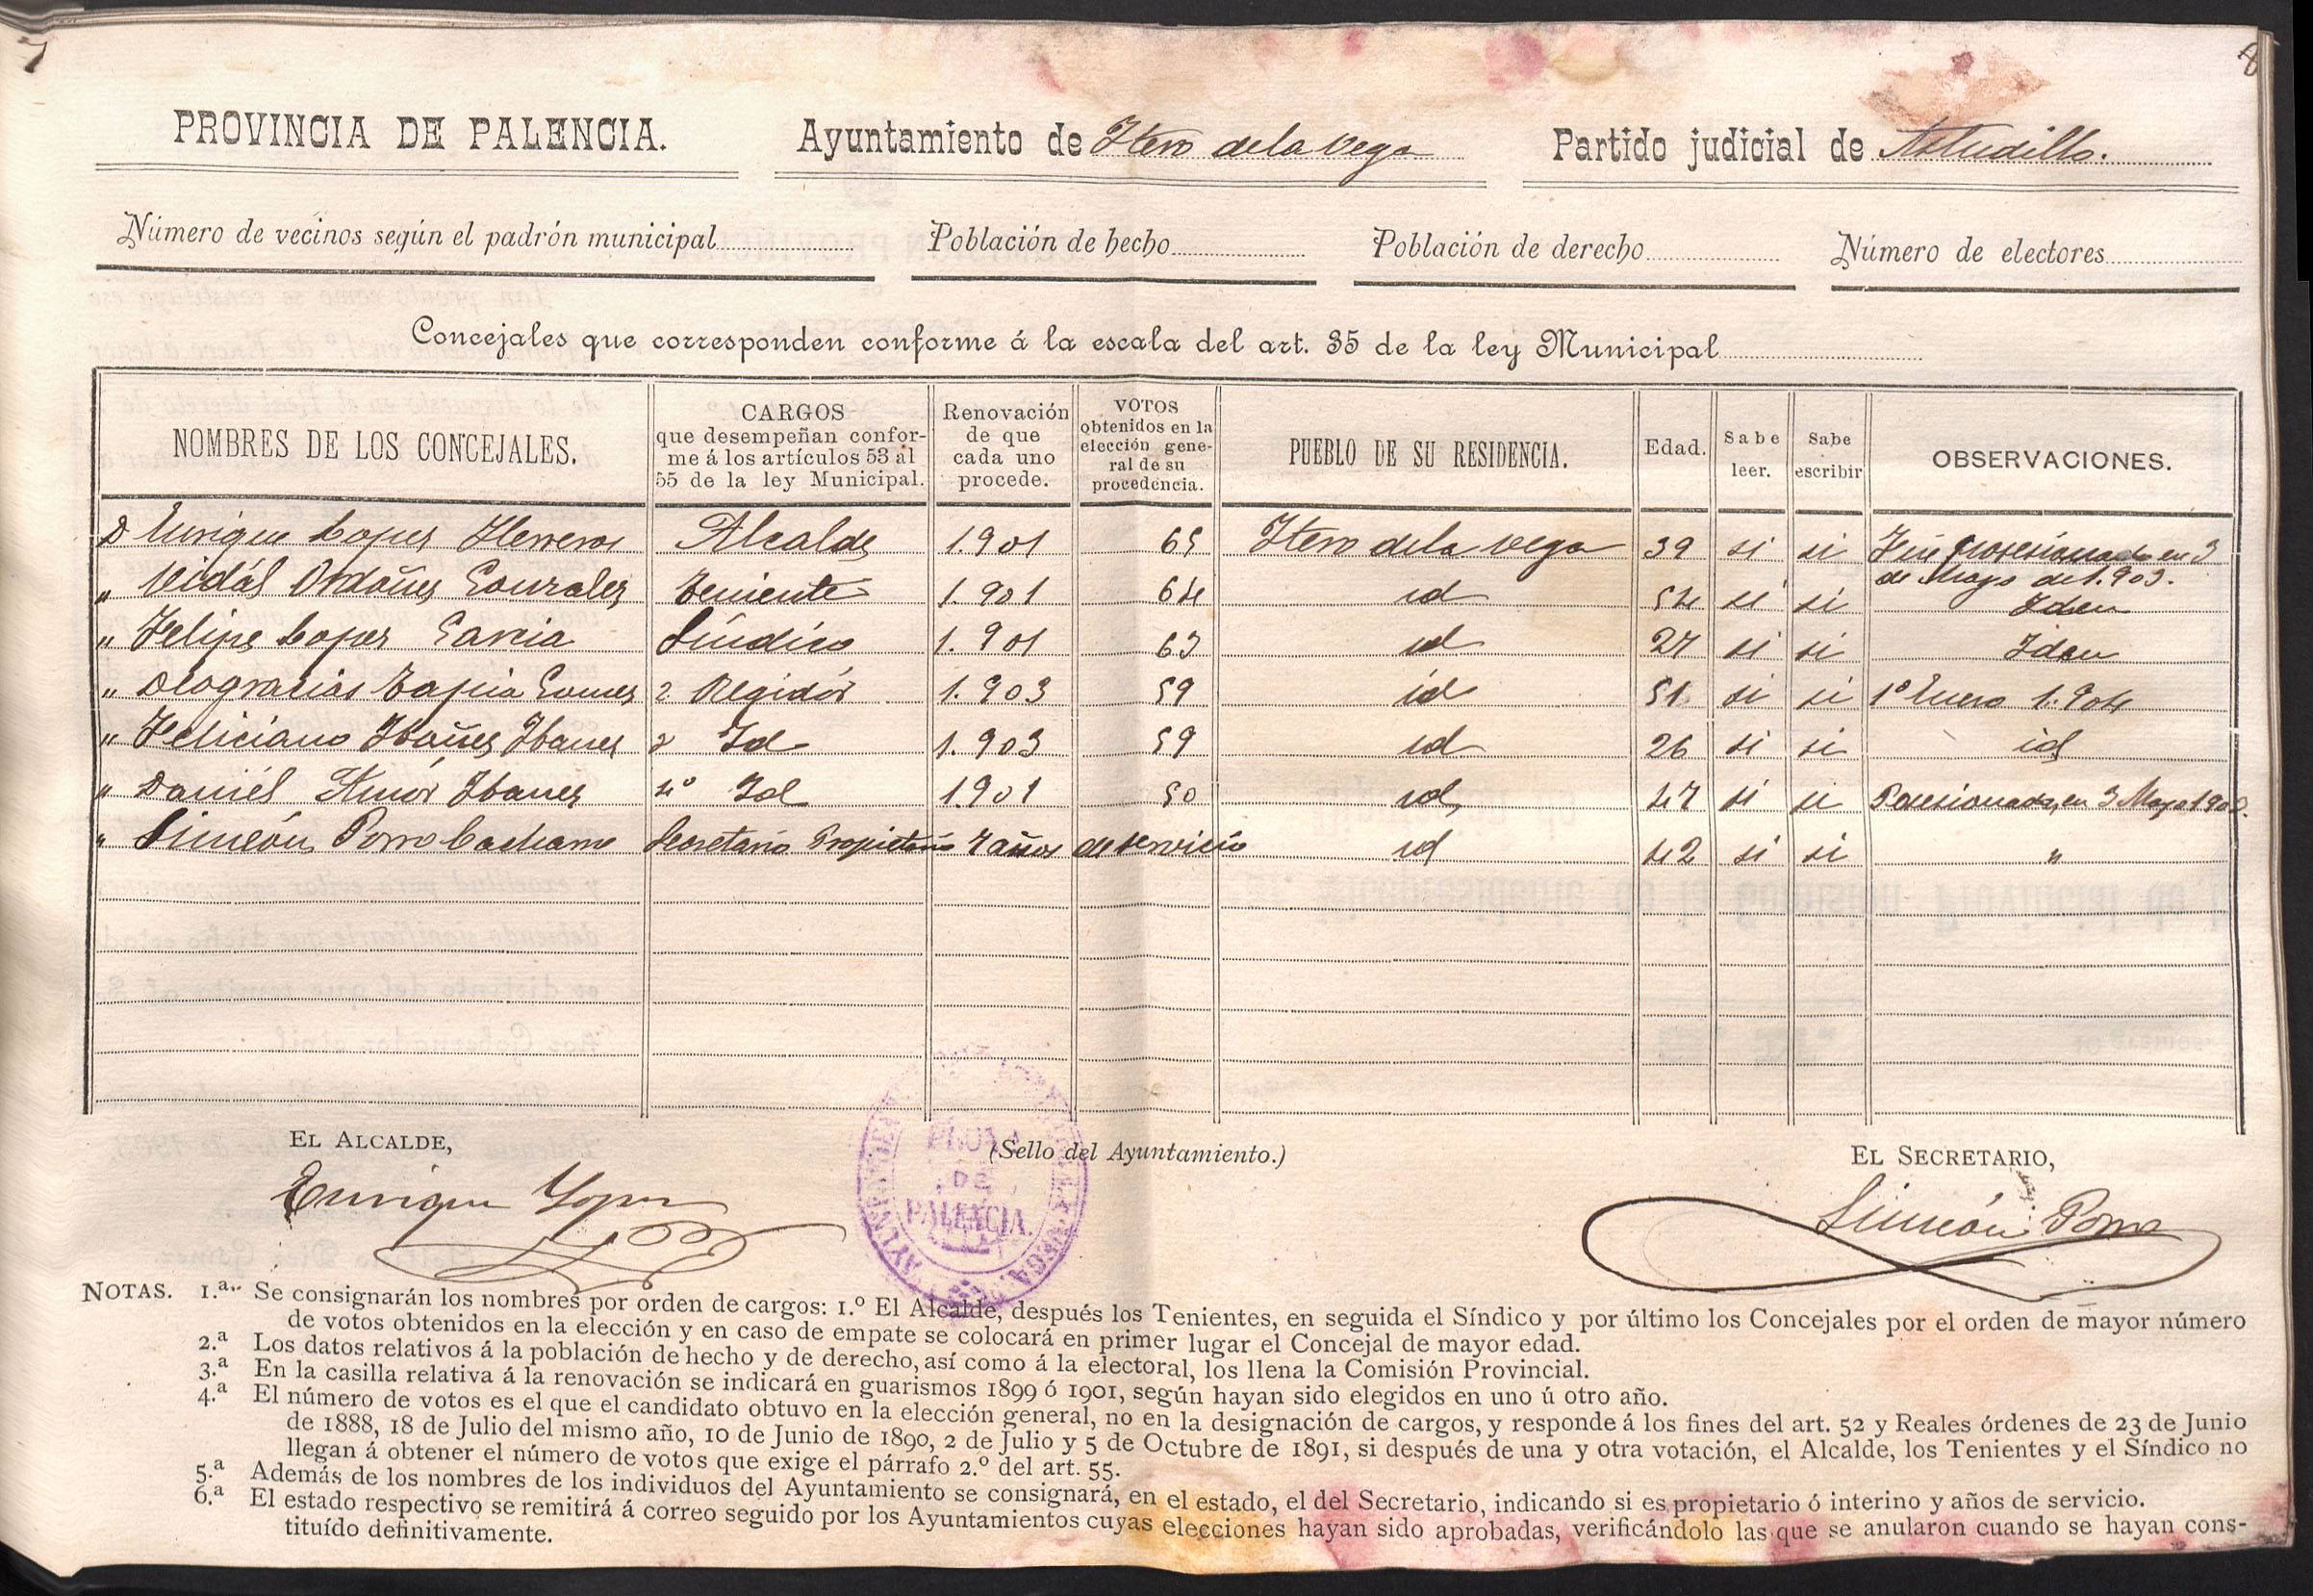 7
8
PROVINCIA DE PALENCIA. Ayuntamiento de Itero de la vega Partido judicial de Astudillo.
Número de vecinos según el padrón municipal Población de hecho Población de derecho Número de electores
Concejales que corresponden conforme á la escala del art. 35 de la ley Municipal
NOMBRES DE LOS CONCEJALES. CARGOS que desempeñan conforme á los artículos 53 al 55 de la ley Municipal. Renovación de que cada uno procede. VOTOS obtenidos en la elección general de su procedencia. PUEBLO DE SU RESIDENCIA. Edad. Sabe leer. Sabe escribir OBSERVACIONES.
D Enrique Lopez Herreros Alcalde 1.901 65 Itero de la vega 39 si si Fue posesionado en 3 de Mayo de 1.903.
" Vidál Ordoñez Gonzalez Teniente 1.901 64 id 54 si si Idem
" Felipe Lopez Garcia Síndico 1.901 63 id 27 si si Idem
" Deogracias Tapia Gomez 2 Regidór 1.903 59 id 51 si si 1º Enero 1.904
" Feliciano Ibañez Ibañez Id 1.903 59 id 26 si si id
" Daniél Amór Ibañez 4º Id 1901 50 id, 47 si si Posesionado, en 3 Mayo
" Simeón Porro Secretario Propietario 7 años de servicio id 42 si si "
EL ALCALDE, (Sello del Ayuntamiento.) EL SECRETARIO,
Enrique Lopez
Simeón Porro
DE
PALENCIA.
NOTAS. 1.ª Se consignarán los nombres por orden de cargos: 1.º El Alcalde, después los Tenientes, en seguida el Síndico y por último los Concejales por el orden de mayor número
de votos obtenidos en la elección y en caso de empate se colocará en primer lugar el Concejal de mayor edad.
2.ª Los datos relativos á la población de hecho y de derecho, así como á la electoral, los llena la Comisión Provincial.
3.ª En la casilla relativa á la renovación se indicará en guarismos 1899 ó 1901, según hayan sido elegidos en uno ú otro año.
4.ª El número de votos es el que el candidato obtuvo en la elección general, no en la designación de cargos, y responde á los fines del art. 52 y Reales órdenes de 23 de Junio
de 1888, 18 de Julio del mismo año, 10 de Junio de 1890, 2 de Julio y 5 de Octubre de 1891, si después de una y otra votación, el Alcalde, los Tenientes y el Síndico no
llegan á obtener el número de votos que exige el párrafo 2.º del art. 55.
5.ª Además de los nombres de los individuos del Ayuntamiento se consignará, en el estado, el del Secretario, indicando si es propietario ó interino y años de servicio.
6.ª El estado respectivo se remitirá á correo seguido por los Ayuntamientos cuyas elecciones hayan sido aprobadas, verificándolo las que se anularon cuando se hayan cons-
tituído definitivamente.